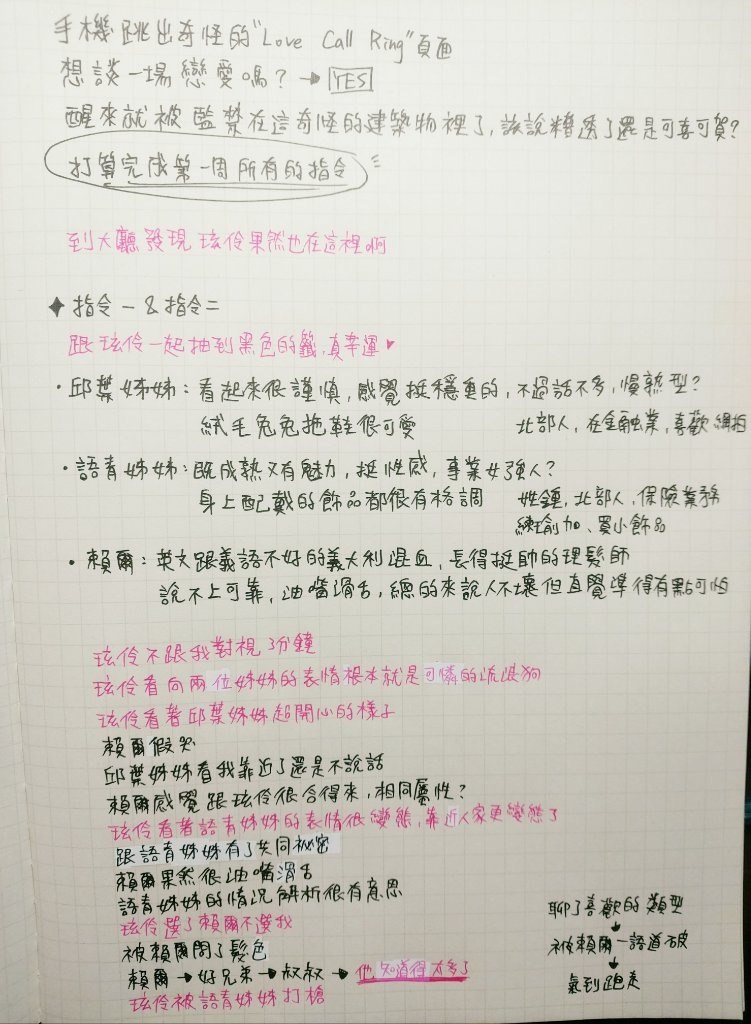 手機跳出奇怪的"Love Call Ring"頁面
想談一場戀愛嗎？→ YES
醒來就被監禁在這奇怪的建築物裡了，該說糟透了還是可喜可賀？
打算完成第一周所有的指令
到大廳發現玹伶果然也在這裡啊
✦ 指令一 & 指令二
跟玹伶一起抽到黑色的籤，真幸運♥
・邱葉姊姊：看起來很謹慎，感覺挺穩重的，不過話不多，慢熟型？
絨毛兔兔拖鞋很可愛
北部人，在金融業，喜歡網拍
・語青姊姊：既成熟又有魅力，挺性感，事業女強人？
身上配戴的飾品都很有格調
姓鍾，北部人，保險業務
練瑜加、買小飾品
・賴爾：英文跟義語不好的義大利混血，長得挺帥的理髮師
說不上可靠，油嘴滑舌，總的來說人不壞但直覺準得有點可怕
玹伶不跟我對視3分鐘
玹伶看向兩位姊姊的表情根本就是可憐的流浪狗
玹伶看著邱葉姊姊超開心的樣子
賴爾假哭
邱葉姊姊看我靠近了還是不說話
賴爾感覺跟玹伶很合得來，相同屬性？
玹伶看著語青姊姊的表情很變態，靠近人家更變態了
跟語青姊姊有了共同秘密
賴爾果然很油嘴滑舌
語青姊姊的情況解析很有意思
玹伶選了賴爾不選我
被賴爾問了髮色
賴爾→好兄弟→叔叔→他知道得太多了
玹伶被語青姊姊打槍
聊了喜歡的類型
↓
被賴爾一語道破
↓
氣到跑走